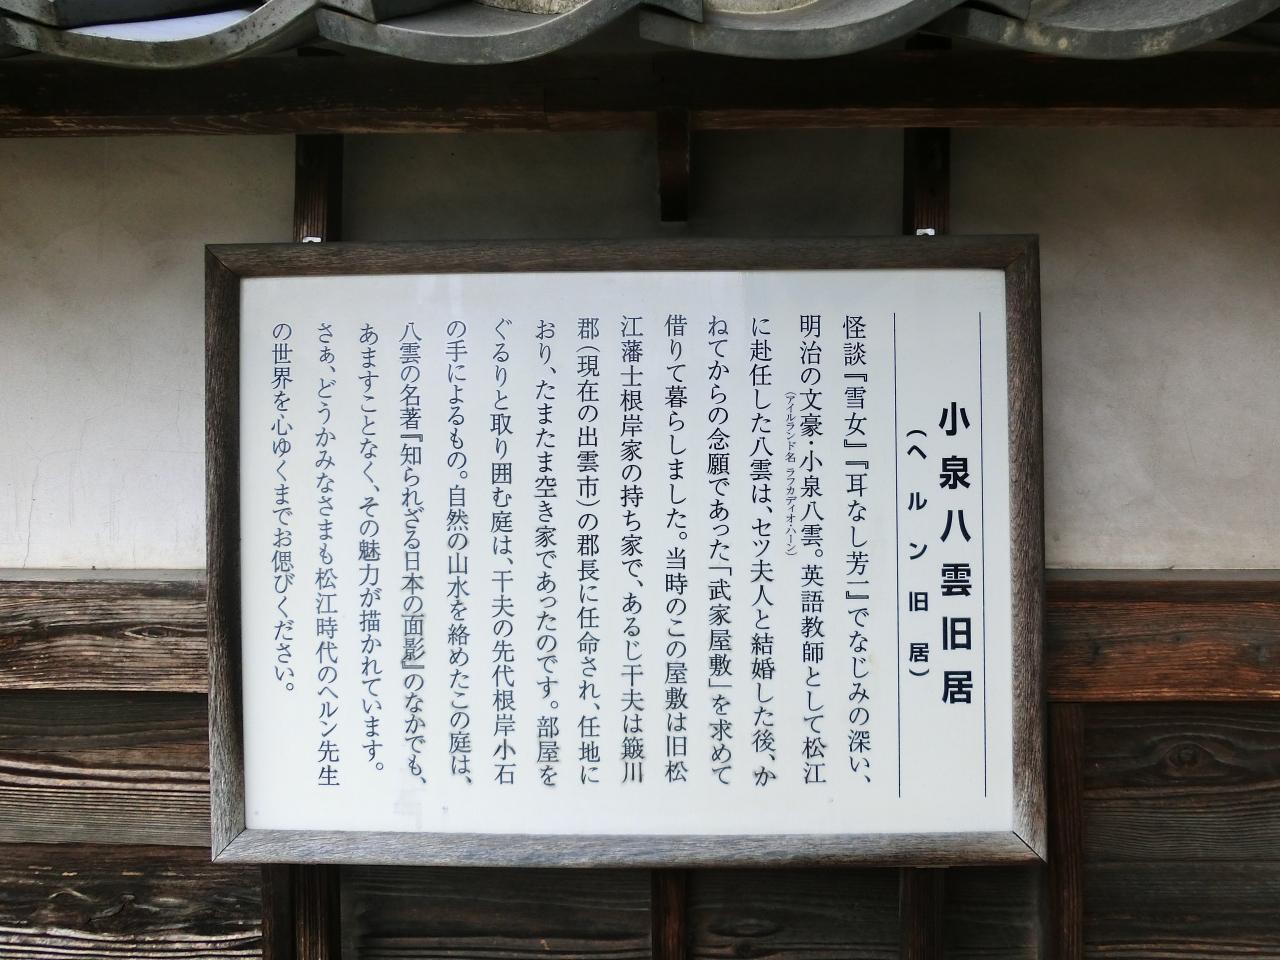 小泉八雲旧居
（ヘルン旧居）
怪談『雪女』『耳なし芳一』でなじみの深い、
明治の文豪・小泉八雲。英語教師として松江
（アイルランド名 ラフカディオ・ハーン）
に赴任した八雲は、セツ夫人と結婚した後、か
ねてからの念願であった「武家屋敷」を求めて
借りて暮らしました。当時のこの屋敷は旧松
江藩士根岸家の持ち家で、あるじ干夫は簸川
郡（現在の出雲市）の郡長に任命され、任地に
おり、たまたま空き家であったのです。部屋を
ぐるりと取り囲む庭は、干夫の先代根岸小石
の手によるもの。自然の山水を絡めたこの庭は、
八雲の名著『知られざる日本の面影』のなかでも、
あますことなく、その魅力が描かれています。
さぁ、どうかみなさまも松江時代のヘルン先生
の世界を心ゆくまでお偲びください。